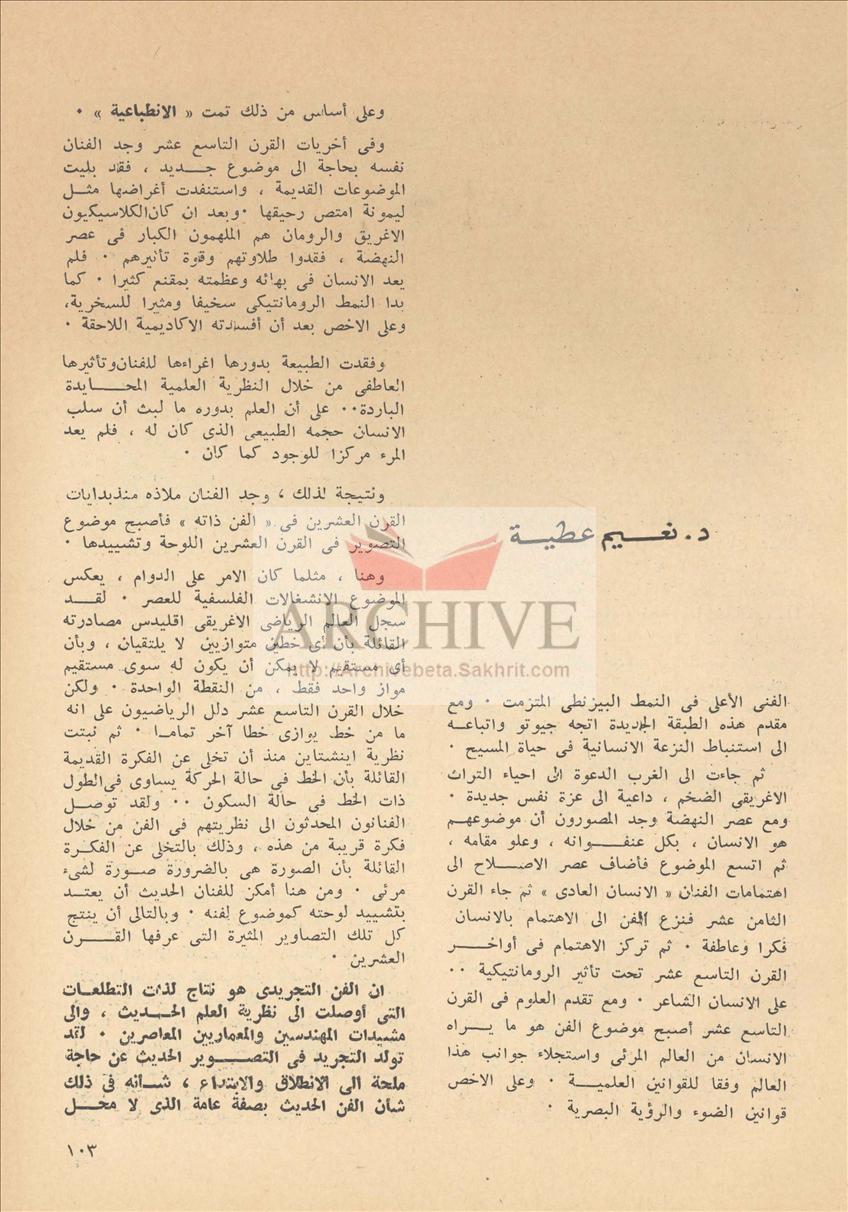 د. نعيم عطية
الفنى الأعلى فى النمط البيزنطى المتزمت . ومع
مقدم هذه الطبقة الجديدة اتجه جيوتو واتباعه
الى استنباط النزعة الانسانية فى حياة المسيح .
ثم جاءت الى الغرب الدعوة الى احياء التراث
الاغريقى الضخم ، داعية الى عزة نفس جديدة .
ومع عصر النهضة وجد المصورون أن موضوعهم
هو الانسان ، بكل عنفوانه ، وعلو مقامه ،
ثم اتسع الموضوع فأضاف عصر الاصلاح الى
اهتمامات الفنان « الانسان العادى » ثم جاء القرن
الثامن عشر فنزع الفن الى الاهتمام بالانسان
فكرا وعاطفة . ثم تركز الاهتمام فى أواخر
القرن التاسع عشر تحت تأثير الرومانتيكية ..
على الانسان الشاعر . ومع تقدم العلوم فى القرن
التاسع عشر أصبح موضوع الفن هو ما يراه
الانسان من العالم المرئى واستجلاء جوانب هذا
العالم وفقا للقوانين العلمية . وعلى الاخص
قوانين الضوء والرؤية البصرية .
وعلى أساس من ذلك تمت « الانطباعية » .
وفى أخريات القرن التاسع عشر وجد الفنان
نفسه بحاجة الى موضوع جديد ، فقد بليت
الموضوعات القديمة ، واستنفدت أغراضها مثل
ليمونة امتص رحيقها . وبعد ان كان الكلاسيكيون
الاغريق والرومان هم الملهمون الكبار فى عصر
النهضة ، فقدوا طلاوتهم وقوة تأثيرهم . فلم
يعد الانسان فى بهائه وعظمته بمقنع كثيرا . كما
بدا النمط الرومانتيكى سخيفا ومثيرا للسخرية،
وعلى الاخص بعد أن أفسدته الاكاديمية اللاحقة .
وفقدت الطبيعة بدورها اغراءها للفنان وتأثيرها
العاطفى من خلال النظرية العلمية المحايدة
الباردة.. على أن العلم بدوره ما لبث أن سلب
الانسان حجمه الطبيعى الذى كان له ، فلم يعد
المرء مركزا للوجود كما كان .
ونتيجة لذلك ، وجد الفنان ملاذه منذ بدايات
القرن العشرين فى « الفن ذاته » فأصبح موضوع
التصوير فى القرن العشرين اللوحة وتشييدها .
وهنا ، مثلما كان الامر على الدوام ، يعكس
الموضوع الانشغالات الفلسفية للعصر . لقد
سجل العالم الرياضى الاغريقى اقليدس مصادرته
القائلة بأن أى خطين متوازيين لا يلتقيان ، وبأن
أى مستقيم لا يمكن أن يكون له سوى مستقيم
مواز واحد فقط ، من النقطة الواحدة . ولكن
خلال القرن التاسع عشر دلل الرياضيون على انه
ما من خط يوازى خطا آخر تماما . ثم نبتت
نظرية اينشتاين منذ أن تخلى عن الفكرة القديمة
القائلة بأن الخط فى حالة الحركة يساوى فى الطول
ذات الخط فى حالة السكون .. ولقد توصل
الفنانون المحدثون الى نظريتهم فى الفن من خلال
فكرة قريبة من هذه ، وذلك بالتخلى عن الفكرة
القائلة بأن الصورة هى بالضرورة صورة لشىء
مرئى . ومن هنا أمكن للفنان الحديث أن يعتد
بتشييد لوحته كموضوع لفنه . وبالتالى أن ينتج
كل تلك التصاوير المثيرة التى عرفها القرن
العشرين .
ان الفن التجريدى هو نتاج لذات التطلعات
التى أوصلت الى نظرية العلم الحديث ، والى
مشيدات المهندسين والمعماريين المعاصرين . لقد
تولد التجريد فى التصوير الحديث عن حاجة
ملحة الى الانطلاق والابتداع ، شأنه فى ذلك
شأن الفن الحديث بصفة عامة الذى لا محل
١٠٣
ARCHIVE
http://Archivebeta.Sakhrit.com